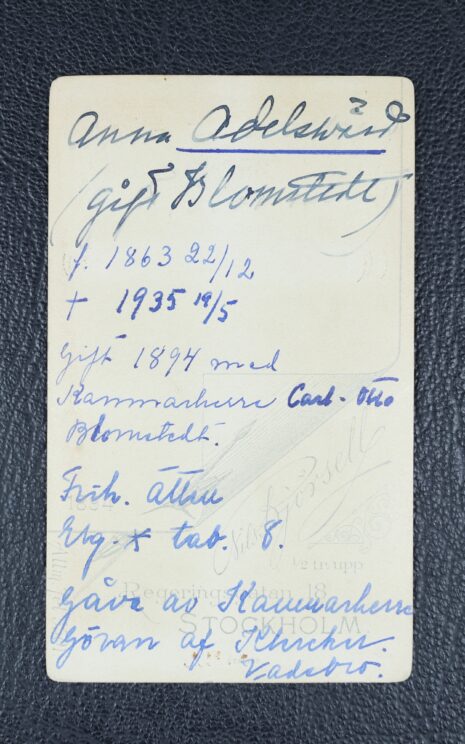 Anna Adelswärd
(gift Blomstedt)
f. 1863 22/12
† 1935 19/5
Gift 1894 med
Kammarherre Carl-Otto
Blomstedt.
Frih. ätten
Elg. * tab. 8.
1894
½ tr. upp
Regeringsgatan 18
STOCKHOLM
Gåva av Kammarherre
Göran af Klercker.
Vadsbro.